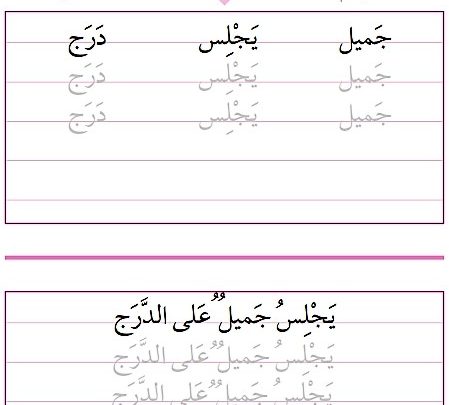 جَميل يَجْلِس دَرَج
جَميل يَجْلِس دَرَج
جَميل يَجْلِس دَرَج
يَجْلِسُ جَميلٌ عَلى الدَّرَج
يَجْلِسُ جَميلٌ عَلى الدَّرَج
يَجْلِسُ جَميلٌ عَلى الدَّرَج